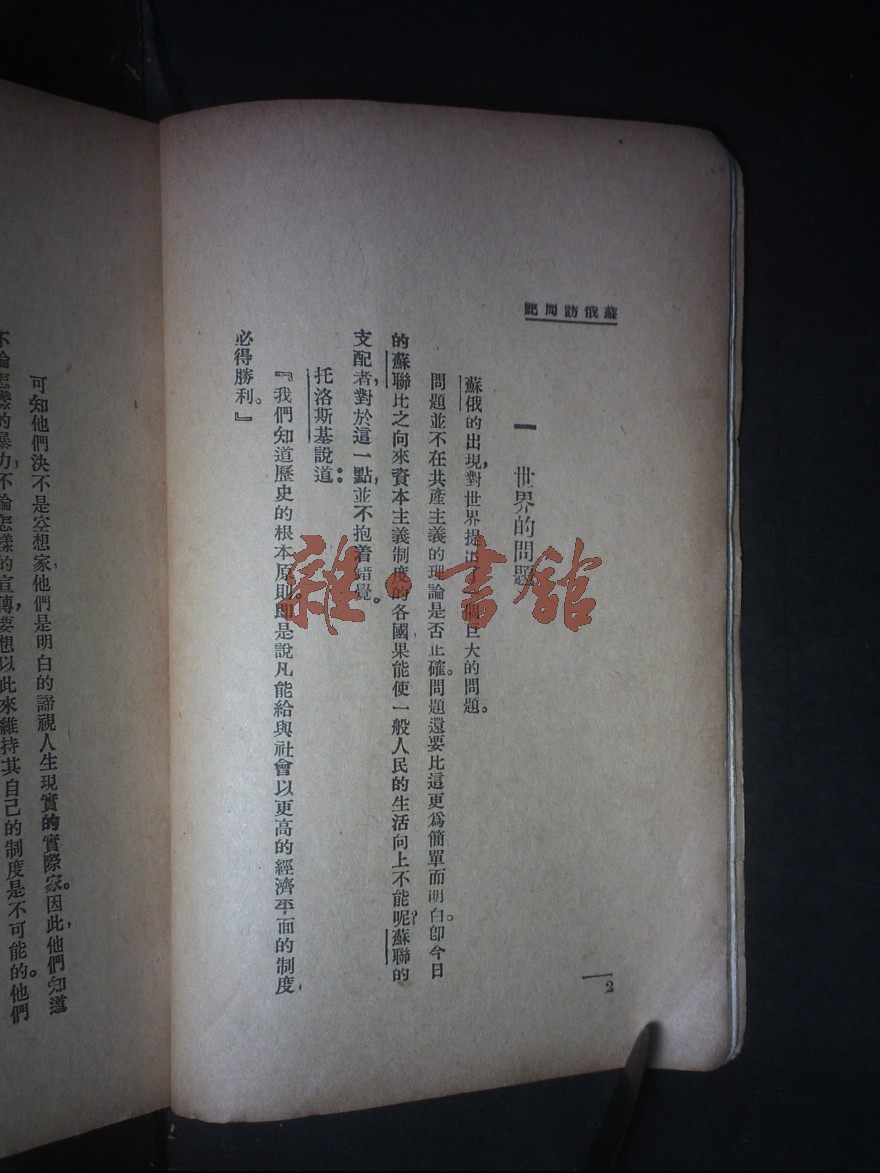 蘇俄訪問記
一 世界的問題
蘇俄的出現,對世界提出了一個巨大的問題。
問題並不在共產主義的理論是否正確。問題還要比這更爲簡單而明白。卽今日
的蘇聯比之向來資本主義制度的各國果能使一般人民的生活向上不能呢?蘇聯的
支配者,對於這一點,並不抱着錯覺。
托洛斯基說道:
『我們知道歷史的根本原則。卽是說凡能給與社會以更高的經濟平面的制度,
必得勝利。』
2
可知他們決不是空想家他們是明白的諦視人生現實的實際家。因此,他們知道
不論怎樣的暴力,不論怎樣的宣傳,要想以此來維持其自己的制度是不可能的。他們
雜·書館